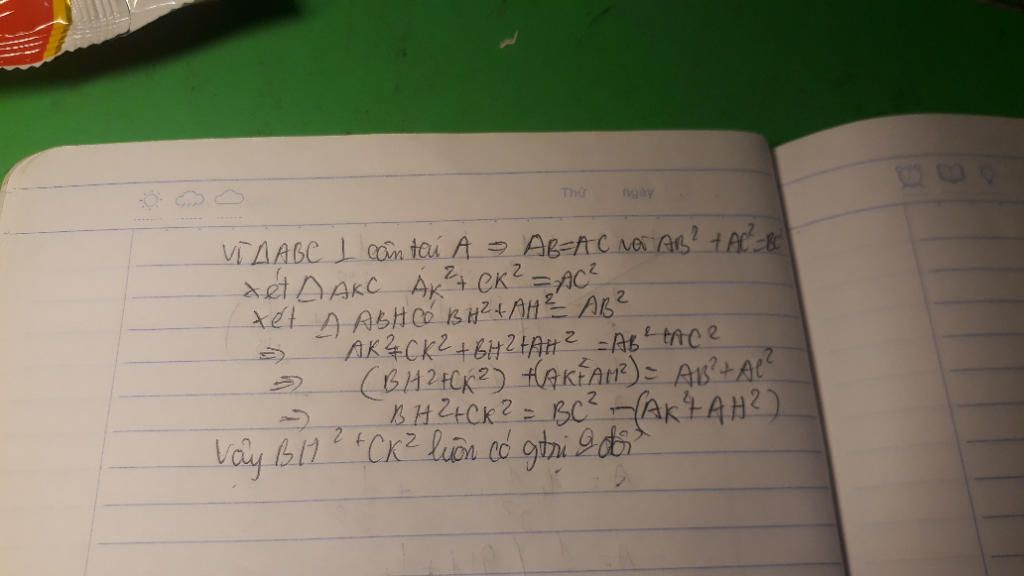 Thứ ngày
Vì △ABC ⊥ cân tại A ⇒ AB=AC với AB² + AC²=BC
xét △ AKC AK²+ CK² = AC²
xét △ ABH có BH²+ AH² = AB²
⇒ AK²+CK²+BH²+AH² = AB²+AC²
⇒ (BH²+CK²) +(AK²+AH²) = AB²+AC²
⇒ BH²+CK² = BC² -(AK²+AH²)
Vậy BH² + CK² luôn có gtrị đổi